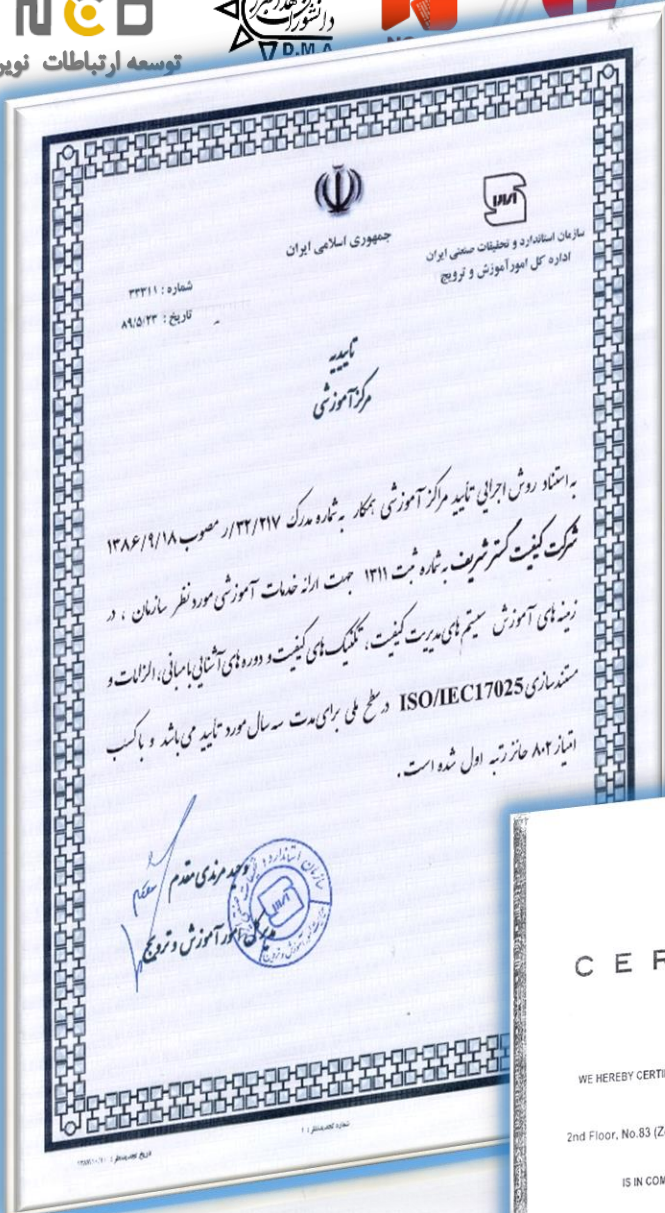 NCD
توسعه ارتباطات نوین
D.M.A
جمهوری اسلامی ایران
سازمان استاندارد و تحقیقات صنعتی ایران
اداره کل امور آموزش و ترویج
شماره : ۳۳۳۱۱
تاریخ : ۸۹/۵/۲۳
تاییدیه
مرکز آموزشی
به استناد روش اجرایی تأیید مراکز آموزشی همکار به شماره مدرک ۳۲/۲۱۷/ر مصوب ۱۳۸۶/۹/۱۸
شرکت کیفیت گستر شریف به شماره ثبت ۱۳۱۱ جهت ارائه خدمات آموزشی مورد نظر سازمان ، در
زمینه های آموزش سیستم های مدیریت کیفیت، تکنیک های کیفیت و دوره های آشنایی با مبانی، الزامات و
مستندسازی ISO/IEC17025 در سطح ملی برای مدت سه سال مورد تأیید می باشد و با کسب
امتیاز ۸۰۲ حائز رتبه اول شده است.
وحید مرندی مقدم
مدیرکل امور آموزش و ترویج
شماره تجدیدنظر : ۱
C E R
WE HEREBY CERTI
2nd Floor, No.83 (Z
IS IN COM